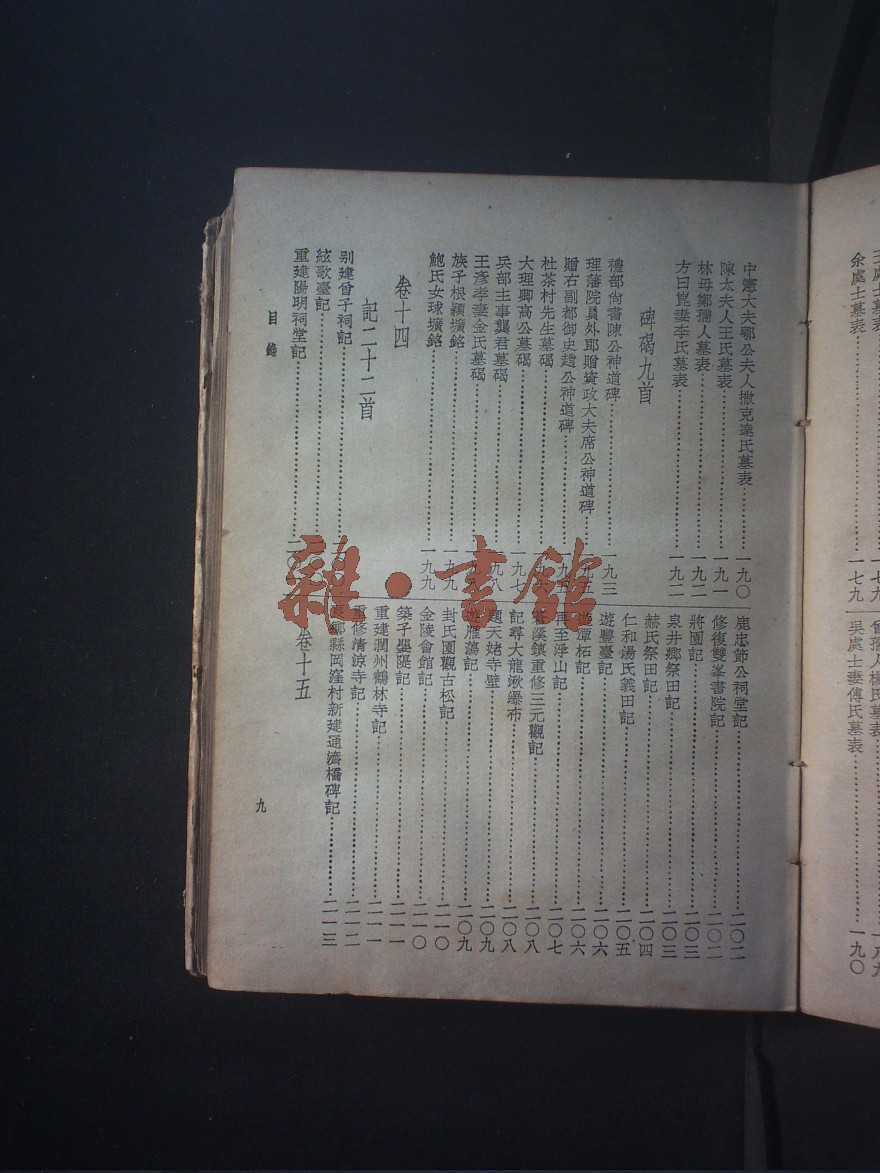 王處士墓表
余處士墓表
一七九
一七九
曾孺人楊氏墓表
吳處士妻傅氏墓表
一八九
一九〇
中憲大夫鄂公夫人撒克達氏墓表 一九〇
陳太夫人王氏墓表 一九一
林母鄭孺人墓表 一九二
方曰崑妻李氏墓表 一九二
碑碣九首
禮部尚書陳公神道碑 一九三
理藩院員外郎贈資政大夫席公神道碑
贈右副都御史趙公神道碑
杜茶村先生墓碣
大理卿高公墓碣 一九七
兵部主事龔君墓碣 一九八
王彥孝妻金氏墓碣
族子根穎壙銘 一九九
鮑氏女球壙銘 一九九
卷十四
記二十二首
别建曾子祠記
絃歌臺記
重建陽明祠堂記
鹿忠節公祠堂記 二〇二
修復雙峯書院記 二〇二
將園記 二〇三
泉井鄉祭田記 二〇三
赫氏祭田記 二〇四
仁和湯氏義田記 二〇五
遊豐臺記 二〇六
遊潭柘記 二〇六
再至浮山記 二〇七
溪鎮重修三元觀記 二〇八
記尋大龍湫瀑布 二〇八
題天姥寺壁 二〇九
遊雁蕩記 二〇九
封氏園觀古松記 二一〇
金陵會館記 二一〇
築子嬰隄記 二一一
重建潤州鶴林寺記 二一一
重修清涼寺記 二一二
鄉縣岡窪村新建通濟橋碑記 二一三
卷十五
目錄
九
雜·書館